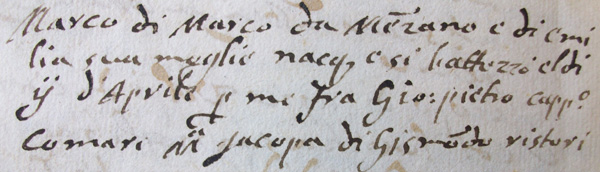 Marco di Marco da Mēzano e di emi
lia sua moglie nacq; e si battezzò el di
ij d'Aprile p me fra Gio: pietro capp.º
Comare Mª Jacopa di Gismōdo ristori